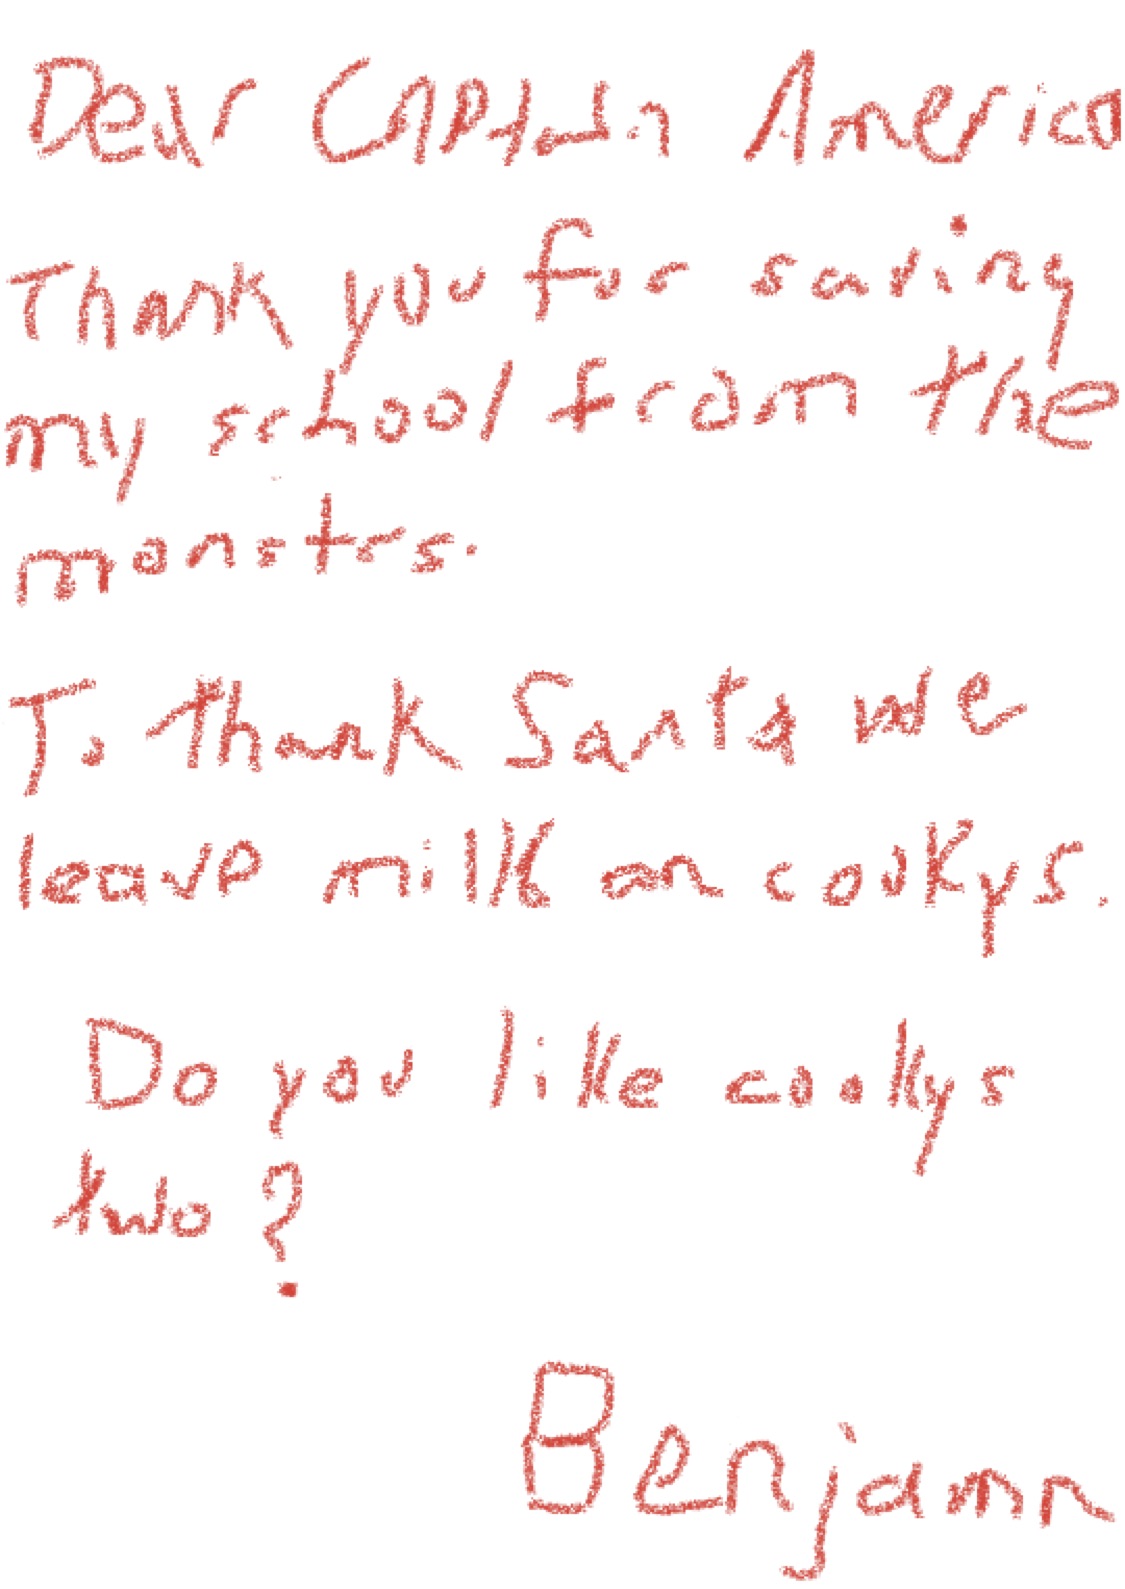 Dear Captain America
Thank you for saving
my school from the
monstrs.
To thank Santa we
leave milk an cookys.
Do you like cookys
two?
Benjamn